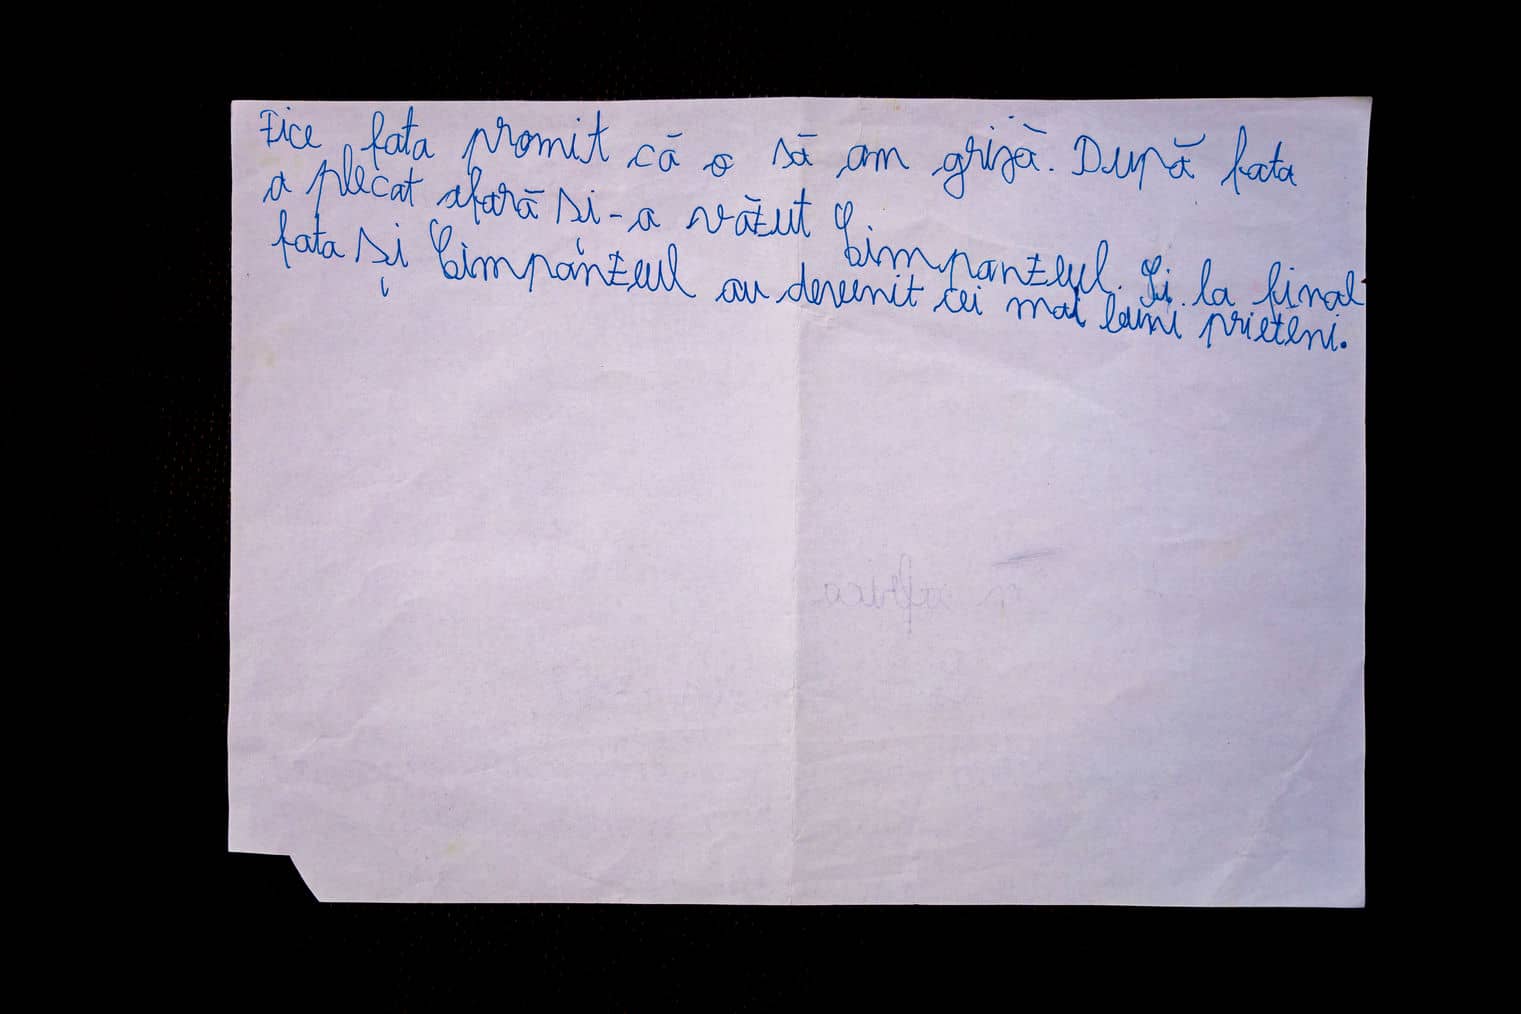 Zice fata promit că o să am grijă. După fata
a plecat afară și-a văzut Cimpanzeul. Și la final
fata și Cimpanzeul au devenit cei mai buni prieteni.
în africa